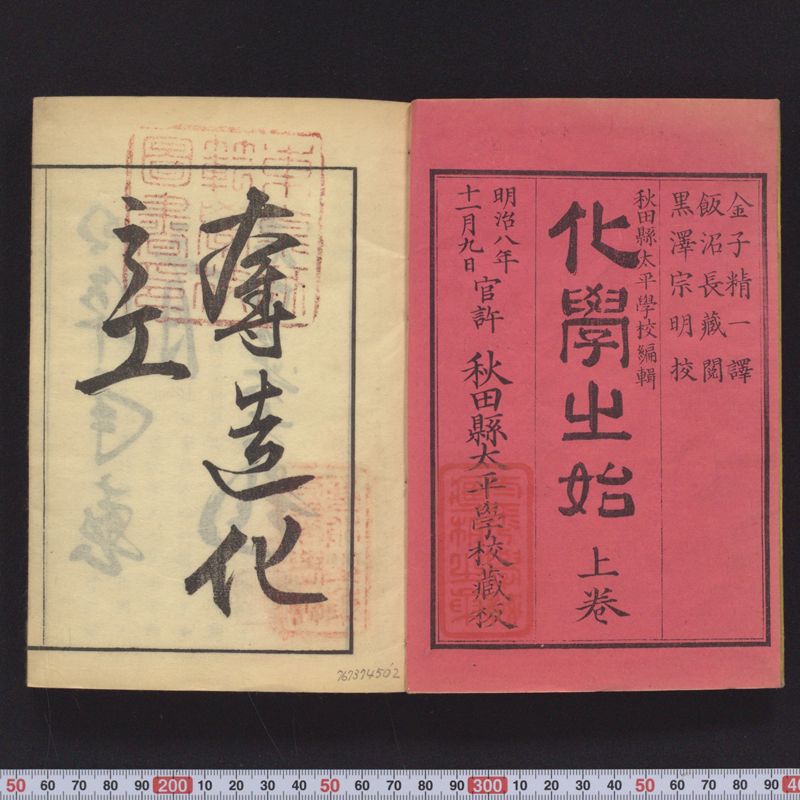 金子精一譯
飯沼長藏閲
黒澤宗明挍
秋田縣太平學校編輯
化學之始 上巻
明治八年
十一月九日
官許
秋田縣太平學校藏板
奪造化
之工
7673745ð2
50 60 70 80 90 200 10 20 30 40 50 60 70 80 90 300 10 20 30 40 50 60 70 80 90 40